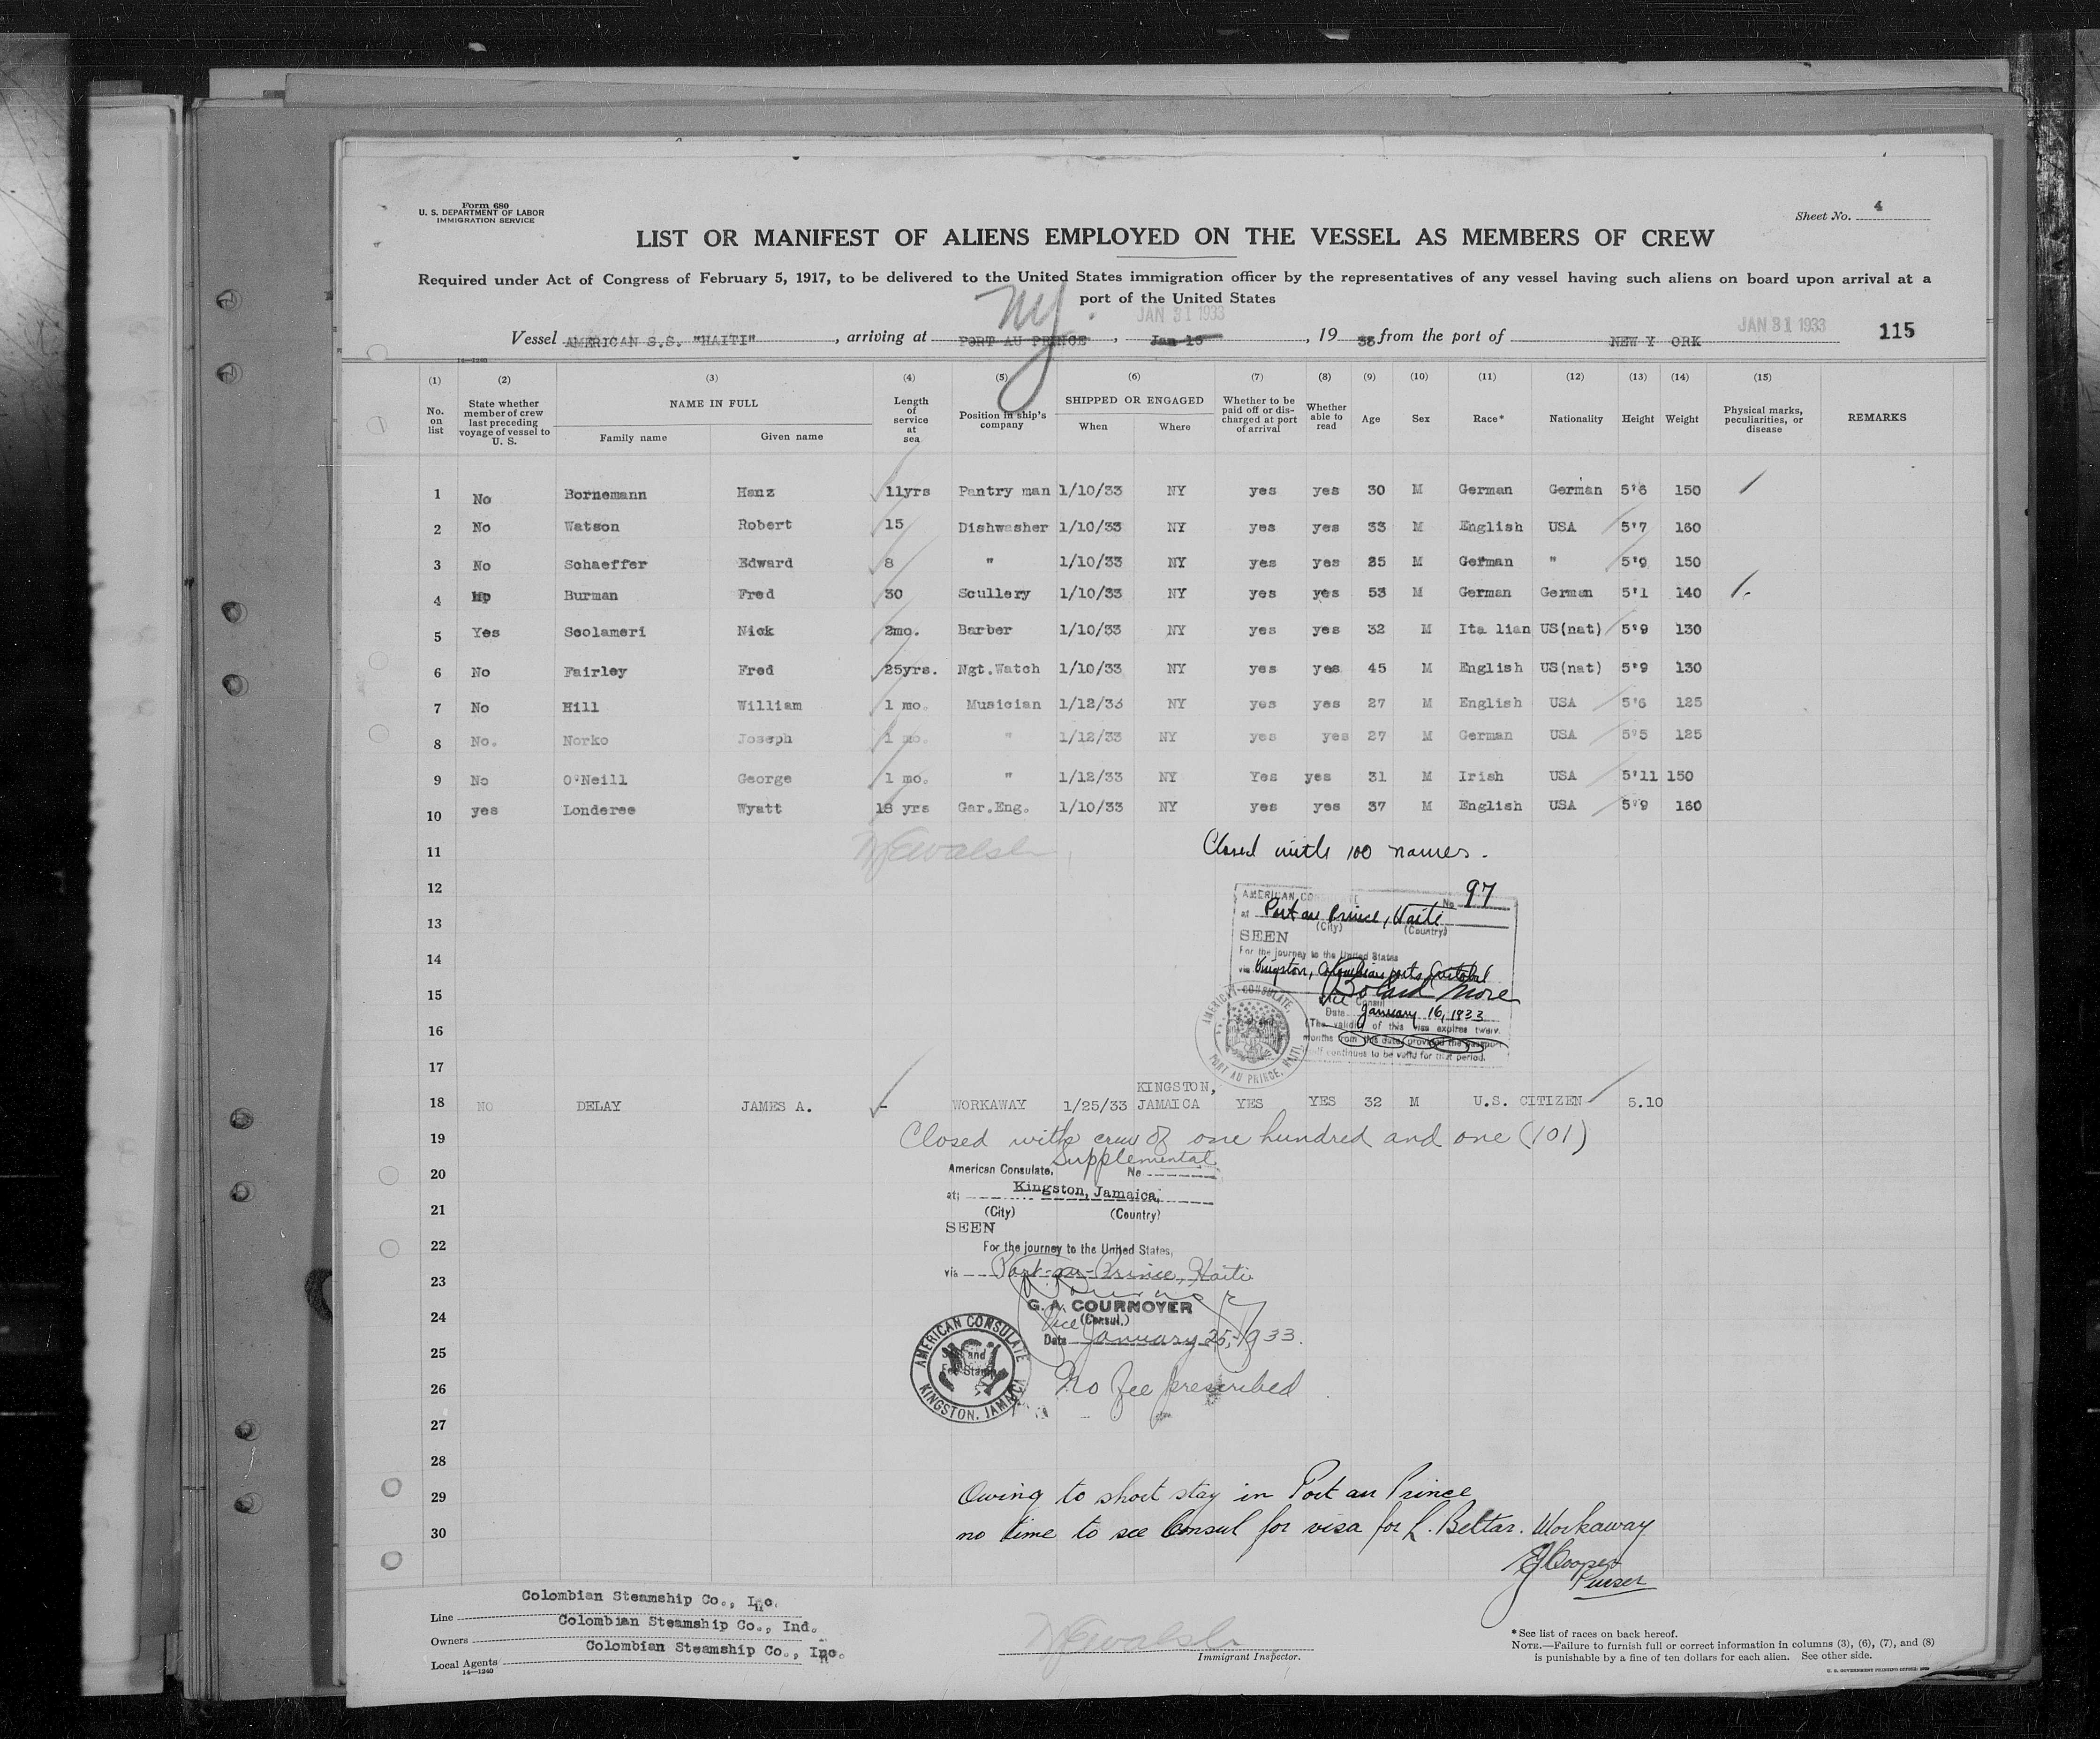 Form 680
U. S. DEPARTMENT OF LABOR
IMMIGRATION SERVICE
Sheet No. 4
LIST OR MANIFEST OF ALIENS EMPLOYED ON THE VESSEL AS MEMBERS OF CREW
Required under Act of Congress of February 5, 1917, to be delivered to the United States immigration officer by the representatives of any vessel having such aliens on board upon arrival at a
port of the United States
NY. JAN 31 1933 JAN 31 1933
Vessel AMERICAN S.S. "HAITI", arriving at PORT AU PRINCE, Jan 15, 19 33 from the port of NEW Y ORK 115
14—1240
(1) (2) (3) (4) (5) (6) (7) (8) (9) (10) (11) (12) (13) (14) (15)
No. on list
State whether member of crew last preceding voyage of vessel to U. S.
NAME IN FULL
Family name Given name
Length of service at sea
Position in ship's company
SHIPPED OR ENGAGED
When Where
Whether to be paid off or discharged at port of arrival
Whether able to read
Age
Sex
Race*
Nationality
Height
Weight
Physical marks, peculiarities, or disease
REMARKS
1 No Bornemann Hanz 11yrs Pantry man 1/10/33 NY yes yes 30 M German German 5'6 150
2 No Watson Robert 15 Dishwasher 1/10/33 NY yes yes 33 M English USA 5'7 160
3 No Schaeffer Edward 8 " 1/10/33 NY yes yes 25 M German " 5'9 150
4 No Burman Fred 30 Scullery 1/10/33 NY yes yes 53 M German German 5'1 140
5 Yes Scolameri Nick 2mo. Barber 1/10/33 NY yes yes 32 M Ita lian US(nat) 5'9 130
6 No Fairley Fred 25yrs. Ngt.Watch 1/10/33 NY yes yes 45 M English US(nat) 5'9 130
7 No Hill William 1 mo. Musician 1/12/33 NY yes yes 27 M English USA 5'6 125
8 No. Norko Joseph 1 mo. " 1/12/33 NY yes yes 27 M German USA 5'5 125
9 No O'Neill George 1 mo. " 1/12/33 NY Yes yes 31 M Irish USA 5'11 150
10 yes Londeree Wyatt 18 yrs Gar.Eng. 1/10/33 NY yes yes 37 M English USA 5'9 160
11 Closed with 100 names.
12
AMERICAN CONSULATE No 97
13
at Port au Prince, Haiti
(City) (Country)
SEEN
14
For the journey to the United States
via Kingston, Colombian ports, Cristobal
15
Vice Consul
Date January 16, 1933
16
(The validity of this visa expires twelve
months from this date provided the passport
itself continues to be valid for that period.
AMERICAN CONSULATE PORT AU PRINCE, HAITI
17
18 NO DELAY JAMES A. - WORKAWAY 1/25/33 KINGSTON, JAMAICA YES YES 32 M U.S. CITIZEN 5.10
19 Closed with crew of one hundred and one (101)
Supplemental
20 American Consulate, No
at; Kingston, Jamaica,
21 (City) (Country)
SEEN
22 For the journey to the United States,
via Port-au-Prince, Haiti
23
G. A. COURNOYER
24 Vice (Consul.)
Date January 25, 1933.
25 AMERICAN CONSULATE KINGSTON, JAMAICA
Seal and
Fee Stamp
26 No fee prescribed
27
28
29 Owing to short stay in Port au Prince
30 no time to see Consul for visa for L. Beltar. Workaway
EJ Cooper
Purser
Line Colombian Steamship Co., Inc.
Owners Colombian Steamship Co., Ind.
Local Agents Colombian Steamship Co., Inc.
14—1240
Immigrant Inspector.
* See list of races on back hereof.
NOTE.—Failure to furnish full or correct information in columns (3), (6), (7), and (8)
is punishable by a fine of ten dollars for each alien. See other side.